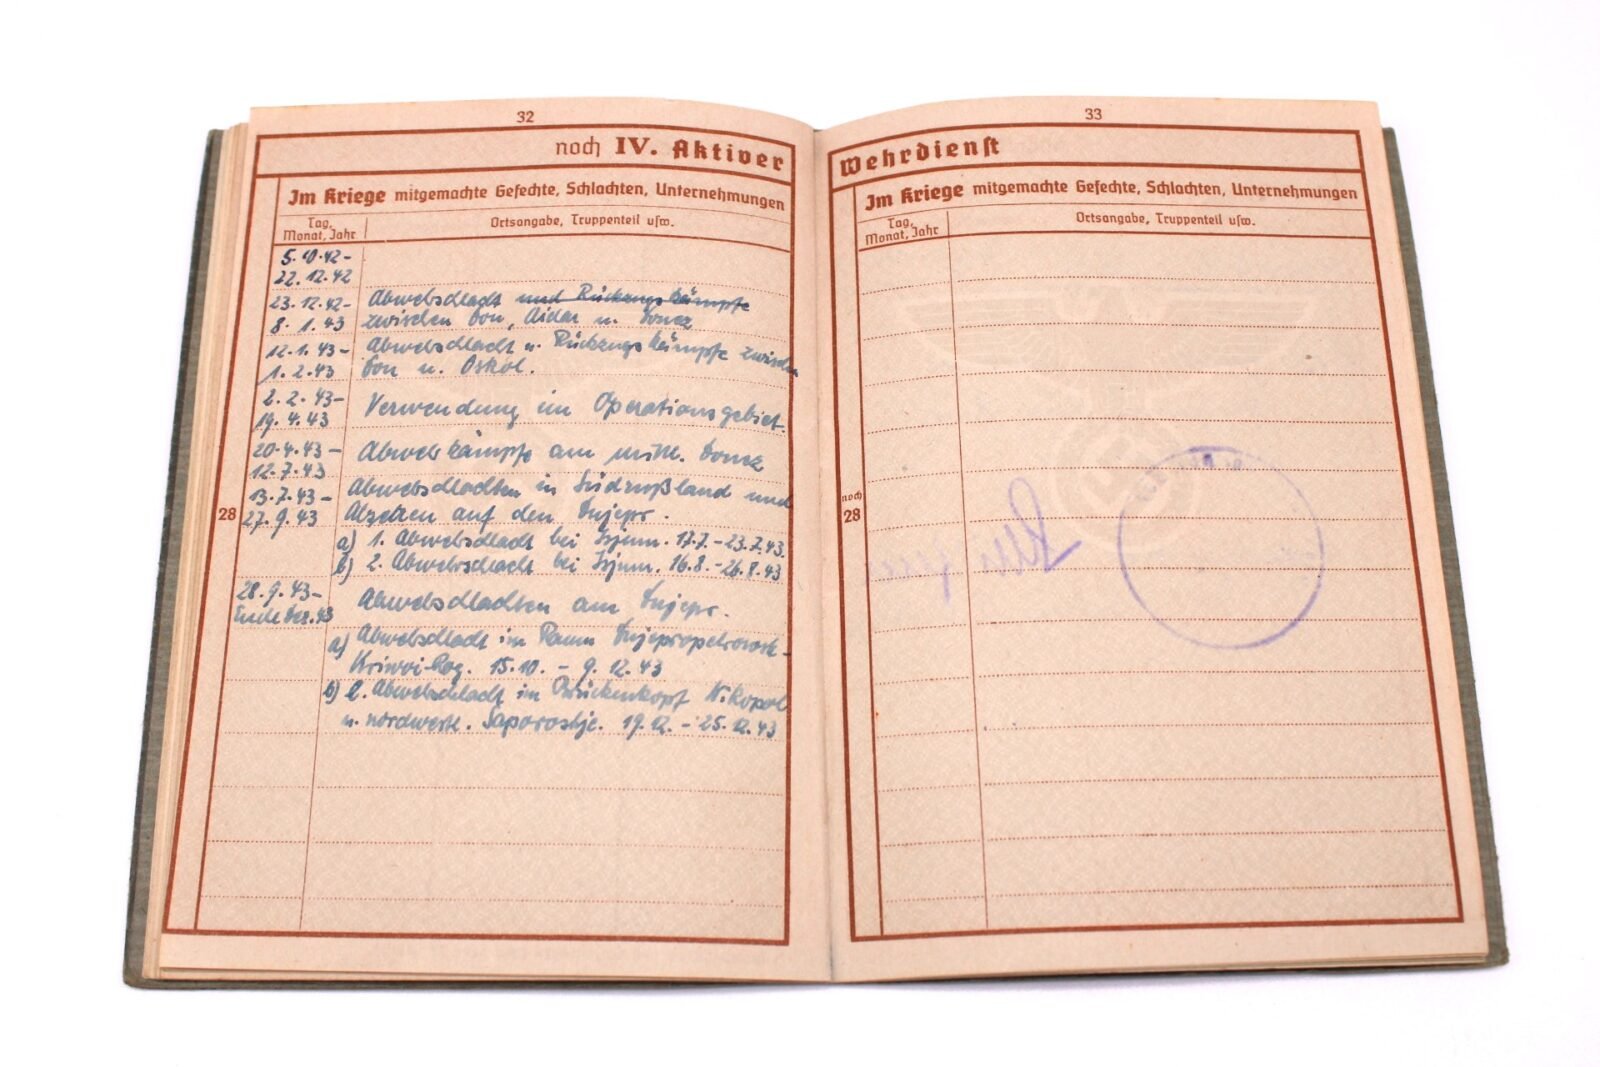 32
noch IV. Aktiver
Im Kriege mitgemachte Gefechte, Schlachten, Unternehmungen
Tag, Monat, Jahr
Ortsangabe, Truppenteil usw.
5.10.42-
22.12.42
23.12.42- Abwehrschlacht und Rückzugskämpfe
8.1.43 zwischen Don, Aidar u. Donez
12.1.43- Abwehrschlacht u. Rückzugskämpfe zwischen
1.2.43 Don u. Oskol.
2.2.43- Verwendung im Operationsgebiet.
19.4.43
20.4.43- Abwehrkämpfe am mittl. Donez
12.7.43
13.7.43- Abwehrschlachten in Südrußland und
28
27.9.43 Absetzen auf den Dnjepr.
a) 1. Abwehrschlacht bei Isjum. 17.7.-23.7.43.
b) 2. Abwehrschlacht bei Isjum. 16.8.-26.8.43
28.9.43- Abwehrschlachten am Dnjepr.
Ende Dez.43
a) Abwehrschlacht im Raum Dnjepropetrowsk-
Kriwoi-Rog. 15.10. - 9.12.43
b) 2. Abwehrschlacht im Brückenkopf Nikopol
u. nordwestl. Saporoshje. 19.12.-25.12.43
33
Wehrdienst
Im Kriege mitgemachte Gefechte, Schlachten, Unternehmungen
Tag, Monat, Jahr
Ortsangabe, Truppenteil usw.
noch
28